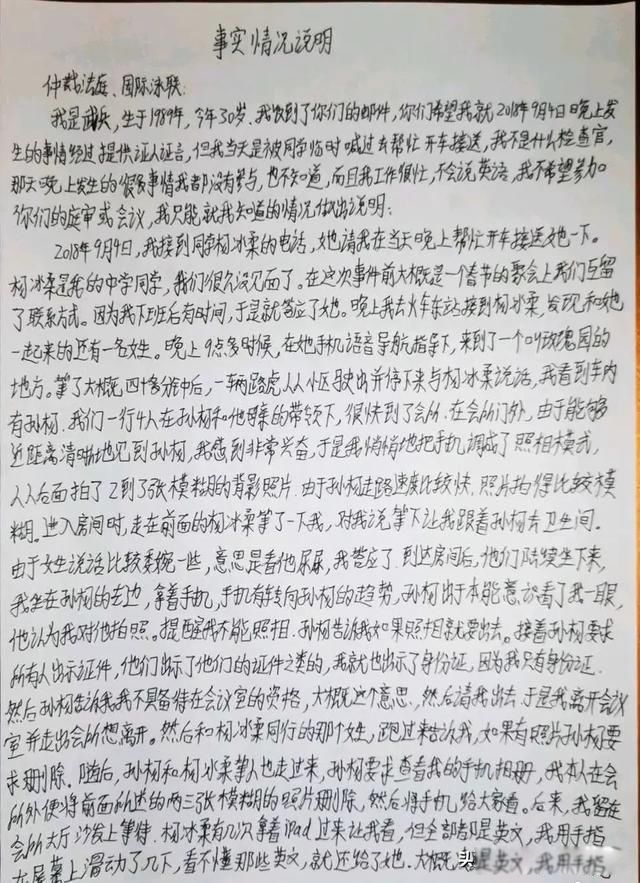 事实情况说明
仲裁法庭、国际泳联:
我是武兵,生于1989年,今年30岁。我收到了你们的邮件,你们希望我就2018年9月4日晚上发
生的事情经过提供证人证言,但我当天是被同学临时喊过去帮忙开车接送,我不是什么检查官,
那天晚上发生的很多事情我都没有参与,也不知道,而且我工作很忙,不会说英语,我不希望参加
你们的庭审或会议,我只能就我知道的情况做出说明:
2018年9月4日,我接到同学杨冰柔的电话,她请我在当天晚上帮忙开车接送她一下。
杨冰柔是我的中学同学,我们很久没见面了。在这次事件前大概是一个春节的聚会上我们互留
了联系方式。因为我下班后有时间,于是就答应了她。晚上我去火车东站接到杨冰柔,发现和她
一起来的还有一名女生。晚上9点多时候,在她手机语音导航指导下,来到了一个叫玫瑰园的
地方。等了大概四十多分钟后,一辆路虎从小区驶出并停下来与杨冰柔说话,我看到车内
有孙杨.我们一行4人在孙杨和他母亲的带领下,很快到了会所.在会所门外,由于能够
近距离清晰地见到孙杨,我感到非常兴奋,于是我悄悄地把手机调成了照相模式,
从后面拍了2到了3张模糊的背影照片.由于孙杨走路速度比较快.照片拍得比较模
糊。进入房间时,走在前面的杨冰柔等了一下我,对我说等下让我跟着孙杨去卫生间.
由于女生说话比较委婉一些,意思是看他尿尿,我答应了.到达房间后,他们陆续坐下来,
我坐在孙杨的左边,拿着手机,手机有转向孙杨的趋势,孙杨出于本能意识看了我一眼,
他认为我对他拍照。提醒我不能照相.孙杨告诉我如果照相就要出去。接着孙杨要求
所有人出示证件,他们出示了他们的证件之类的,我就也出示了身份证,因为我只有身份证.
然后孙杨告诉我我不具备待在会议室的资格,大概这个意思.然后请我出去.于是我离开会议
室并走出会所想离开。然后和杨冰柔同行的那个女生,跑过来告诉我,如果有照片孙杨要
求删除.随后,孙杨和杨冰柔等人也走过来,孙杨要求查看我的手机相册,我本人在会
所外便将前面所述的两三张模糊的照片删除,然后将手机给大家看。后来,我留在
会所大厅沙发上等待.杨冰柔有几次拿着ipad过来让我看,但全部都是英文,我用手指
在屏幕上滑动了几下,看不懂那些英文,就还给了她.大概是英文,我用手指